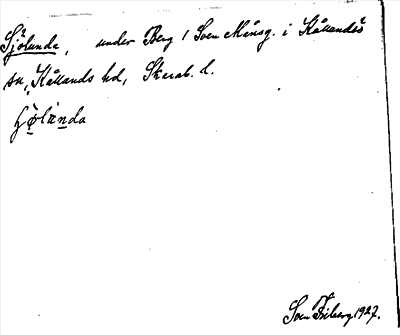 Sjölunda, under Berg 1 Sven Månsg. i Kållandsö
sn, Kållands hd, Skarab. l.
Sven Friberg 1927.